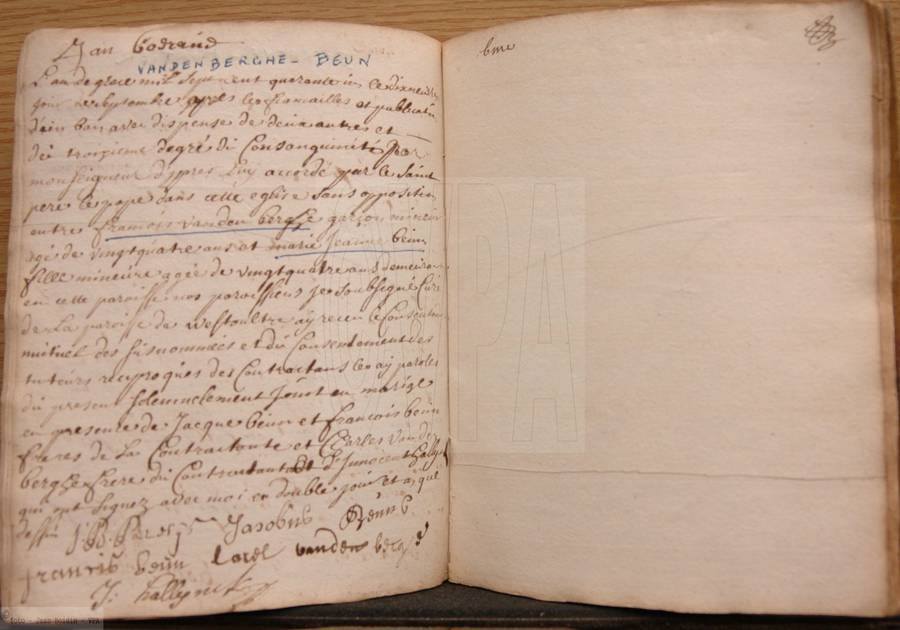 Jan Codraud
VANDENBERGHE - BEUN
L'an de grace mil sept cent quarante un le dixneuvie
jour septembre apres les fiancailles et publicatn
d'un ban avec dispense de deux autres et
du troizieme degré du Consanguinité Par
monseigneur d'ypres luy accordé par le Saint
pere le pape dans cette eglise sans oppositin
entre francois vanden berghe garçon mineur
agé de vingtquatre ans et marie Jeanne beun
fille mineure agée de vingtquatre ans demeurans
en cette paroisse nos paroissiens je soubsigné Curé
de La paroise de Westoultre aÿ receu le Consentemt
mutuel des susnommées et du Consentement des
tuteurs reciproques des Contractans les aÿ paroles
du present solemnelement Joint en mariage
en presence de Jacque beun et francois beun
freres de La Contractante et Charles vanden
berghe frere du Contractant et d'Innocent hally
qui ont signez avec moi en double jour et a que
dessus
Jacobus Beun
francis beun Carel vanden berghe
J: hallynck
bme
foto - Jean Boidin - VPA
VPA